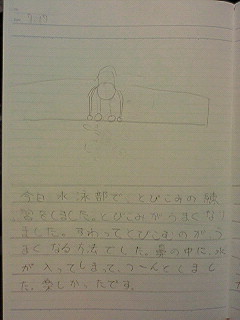 今日、水泳部で、とびこみの練
習をしました。とびこみがうまくなり
ました。すわってとびこむのが、う
まくなる方法でした。鼻の中に、水
が入ってしまって、つ〜んとしまし
た。楽しかったです。